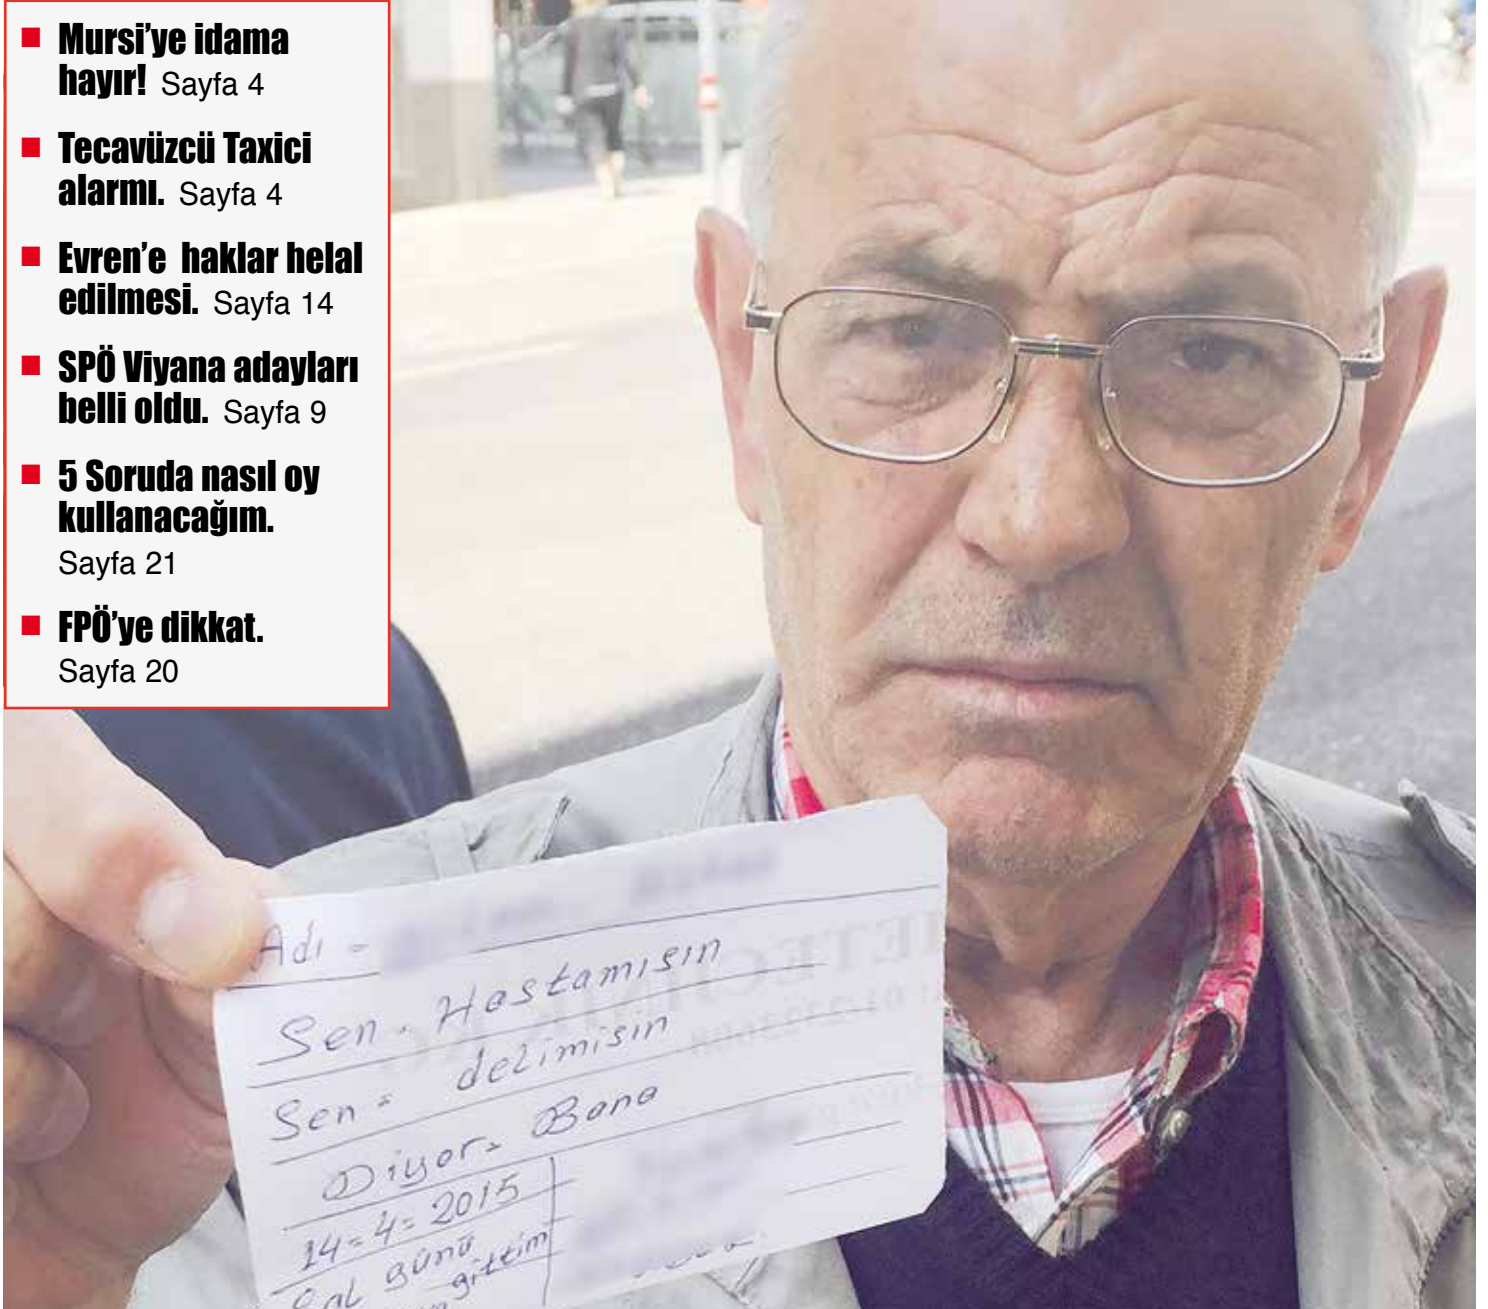 ■ Mursi’ye idama
hayır! Sayfa 4
■ Tecavüzcü Taxici
alarmı. Sayfa 4
■ Evren’e haklar helal
edilmesi. Sayfa 14
■ SPÖ Viyana adayları
belli oldu. Sayfa 9
■ 5 Soruda nasıl oy
kullanacağım.
Sayfa 21
■ FPÖ’ye dikkat.
Sayfa 20
Adı =
Sen - Hastamısın
Sen = delimisin
Diyor= Bana
14=4=2015
günü
gittim